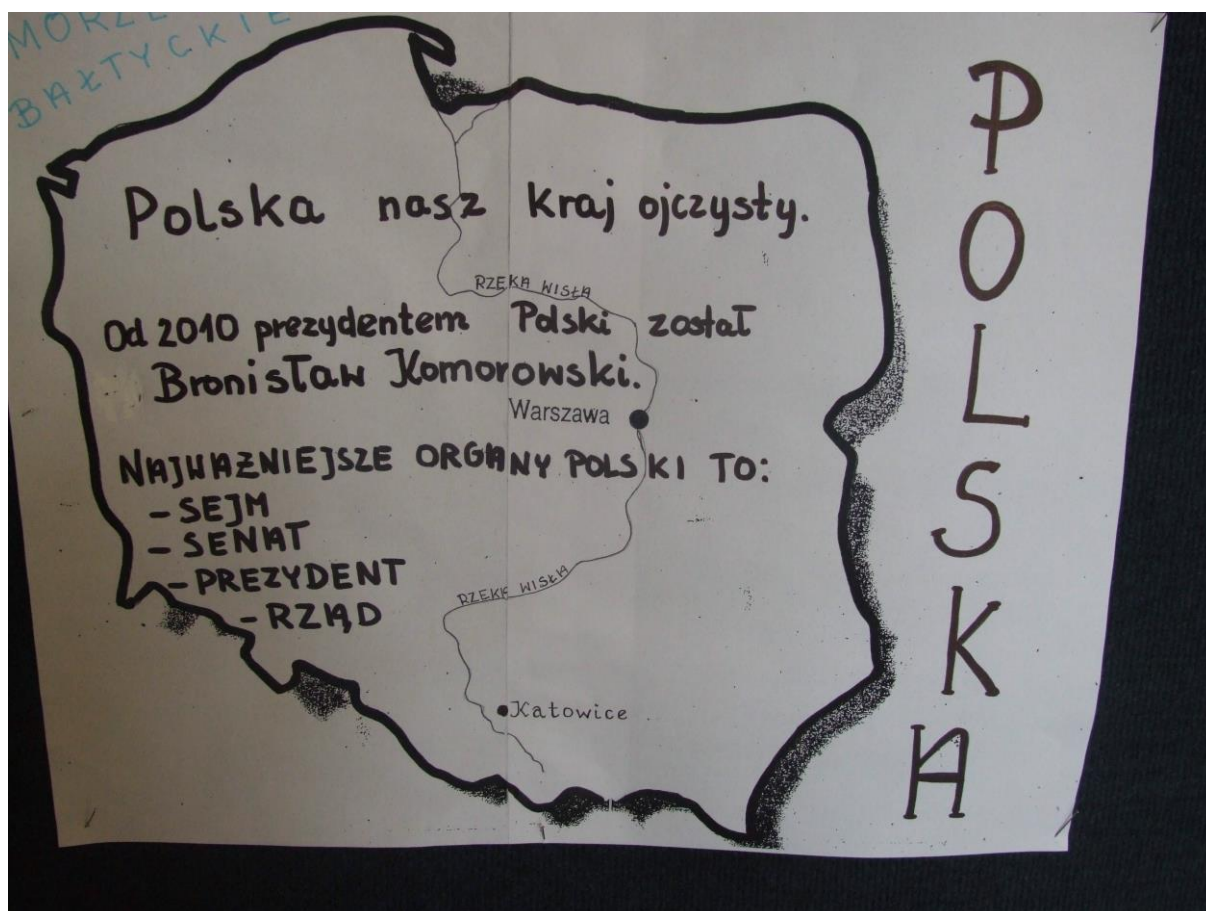 MORZE
BAŁTYCKIE
Polska nasz kraj ojczysty.
RZEKA WISŁA
Od 2010 prezydentem Polski został
Bronisław Komorowski.
Warszawa
NAJWAŻNIEJSZE ORGANY POLSKI TO:
- SEJM
- SENAT
- PREZYDENT
- RZĄD
RZEKA WISŁA
Katowice
POLSKA